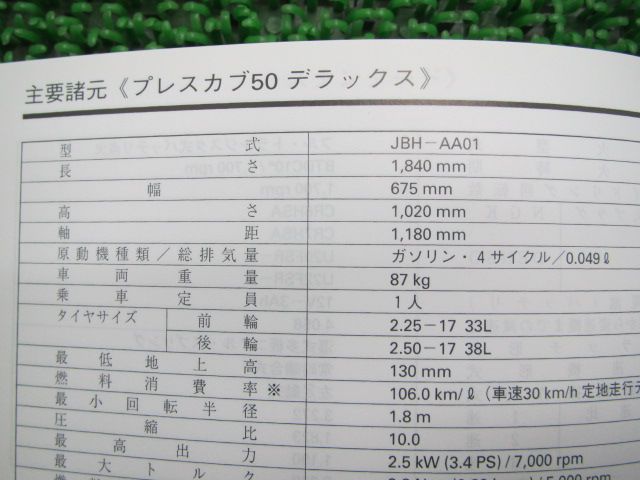 主要諸元《プレスカブ50 デラックス》
型式 JBH-AA01
長さ 1,840 mm
幅 675 mm
高さ 1,020 mm
軸距 1,180 mm
原動機種類／総排気量 ガソリン・4サイクル／0.049ℓ
車両重量 87 kg
乗車定員 1人
タイヤサイズ 前輪 2.25-17 33L
後輪 2.50-17 38L
最低地上高 130 mm
燃料消費率※ 106.0 km/ℓ（車速30 km/h 定地走行
最小回転半径 1.8 m
圧縮比 10.0
最高出力 2.5 kW (3.4 PS) / 7,000 rpm
最大トルク